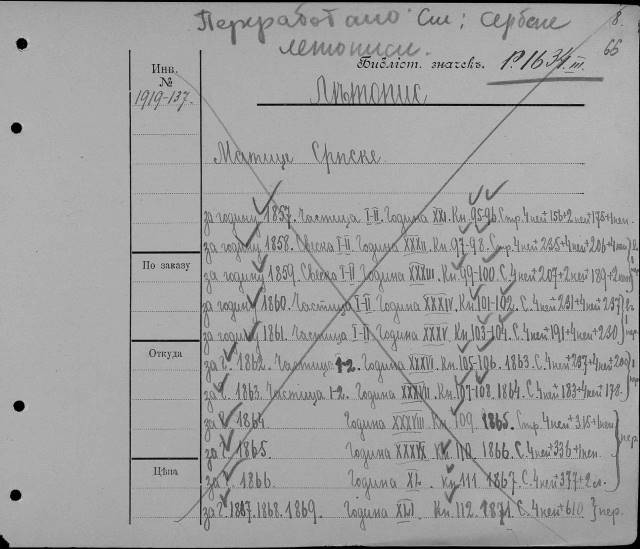 Переработано См; Сербске 8.
летописи. 66
Библіот. значекъ. P.1634.III.
Инв.
№
1919-137.
Лѣтопис
Матице Српске
за годину 1857. Частица I-II. Година XXXI. Кн. 95-96. Стр. 4 неп + 156 + 2 неп + 178 + 1 неп.
за годину 1858. Свеска I-II. Година XXXII. Кн. 97-98. Стр. 4 неп + 235 + 4 неп + 206 + 4 неп
за годину 1859. Свеска I-II Година XXXIII. Кн. 99-100. С. 4 неп 207 + 2 неп 189 + 2 неп
По заказу
за годину 1860. Частица I-II Година XXXIV. Кн. 101-102. С. 4 неп + 231 + 4 неп + 237
за годину 1861. Частица I-II. Година XXXV. Кн. 103-104. С. 4 неп + 191 + 4 неп + 230 пер.
Откуда
за г. 1862. Частица 1-2. Година XXXVI. Кн. 105-106. 1863. С. 4 неп + 237 + 4 неп + 200
за г. 1863. Частица 1-2. Година XXXVII. Кн. 107-108. 1864. С. 4 неп 183 + 4 неп + 178.
за г. 1864 Година XXXVIII Кн. 109. 1865. Стр. 4 неп + 315 + 1 неп
за г. 1865. Година XXXIX Кн. 110. 1866. С. 4 неп + 336 + 1 неп. пер.
Цѣна
за г. 1866 Година XL. Кн. 111. 1867. С. 4 неп + 377 + 2 сл.
за г. 1867. 1868. 1869. Година XLI. Кн. 112. 1871. С. 4 неп + 610 } пер.